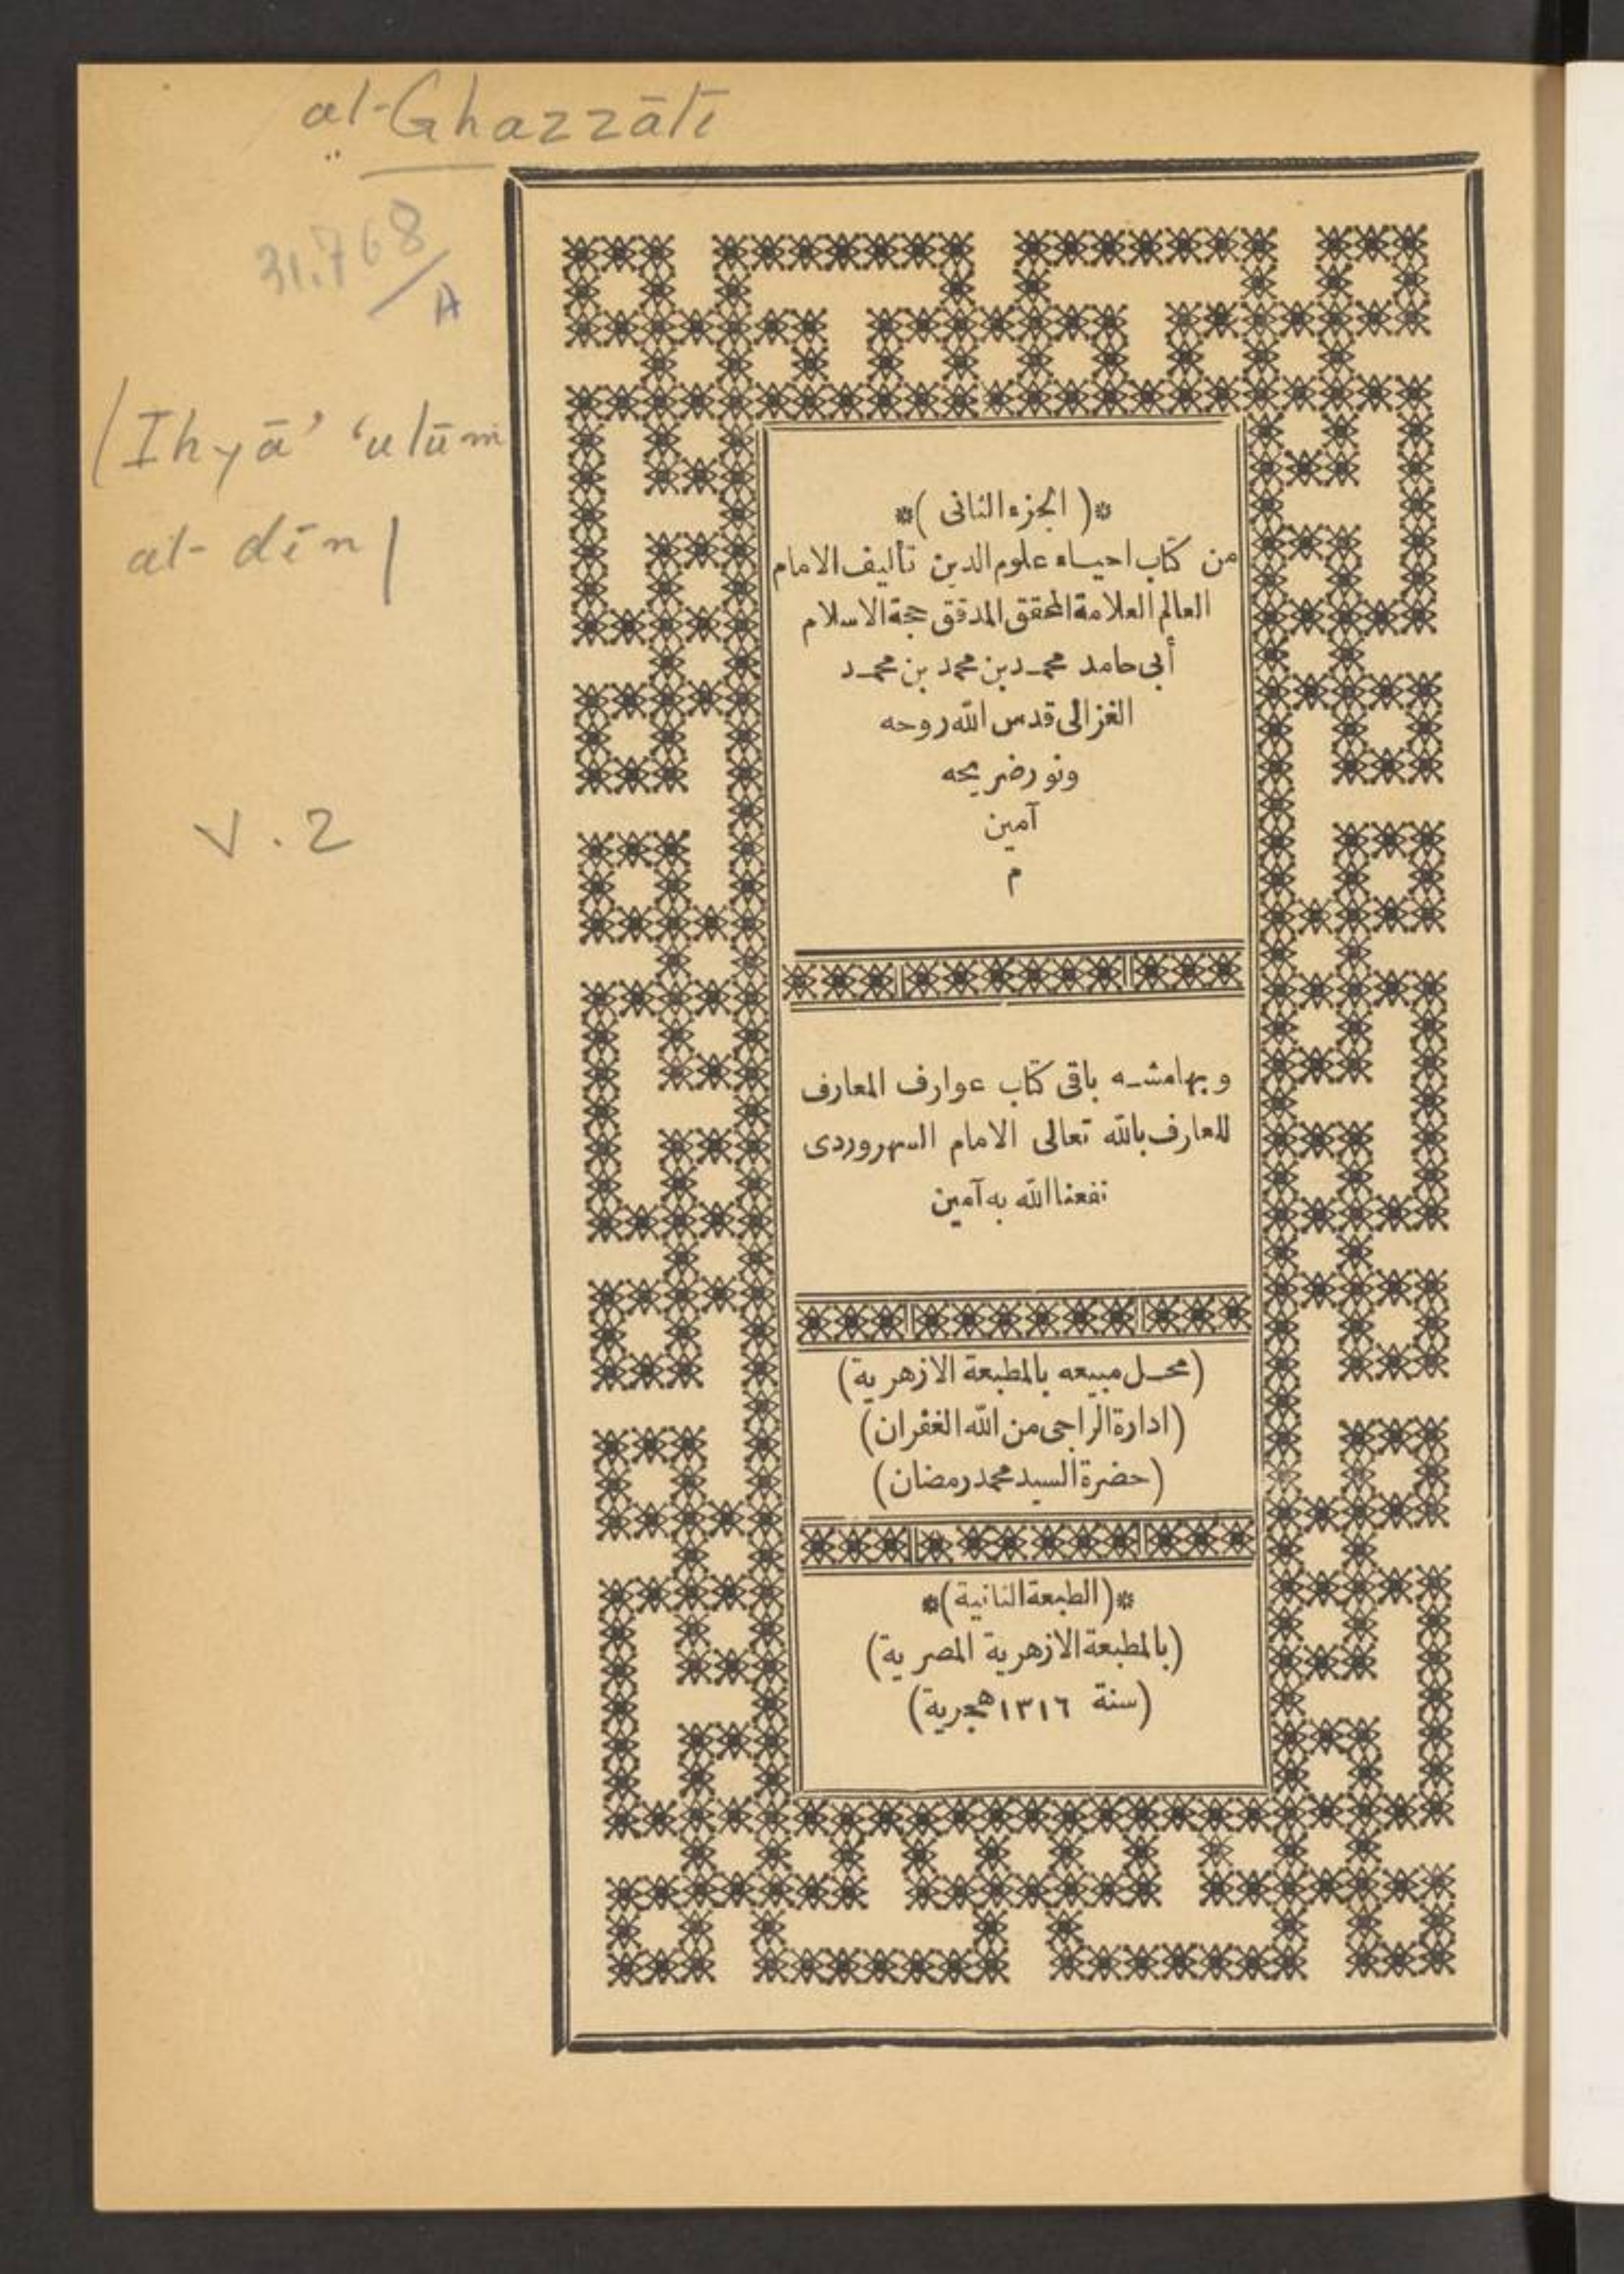 al-Ghazzālī
31.768/A
(Ihyā' 'ulūm
al-dīn)
V.2
*( الجزء الثانى )*
من كتاب احياء علوم الدين تأليف الامام
العالم العلامة المحقق المدقق حجة الاسلام
أبى حامد محمد بن محمد بن محمد
الغزالى قدس الله روحه
ونور ضريحه
آمين
م
وبهامشه باقى كتاب عوارف المعارف
للعارف بالله تعالى الامام السهروردى
نفعنا الله به آمين
(محل مبيعه بالمطبعة الازهرية)
(ادارة الراجى من الله الغفران)
(حضرة السيد محمد رمضان)
*(الطبعة الثانية)*
(بالمطبعة الازهرية المصرية)
(سنة ١٣١٦ هجرية)